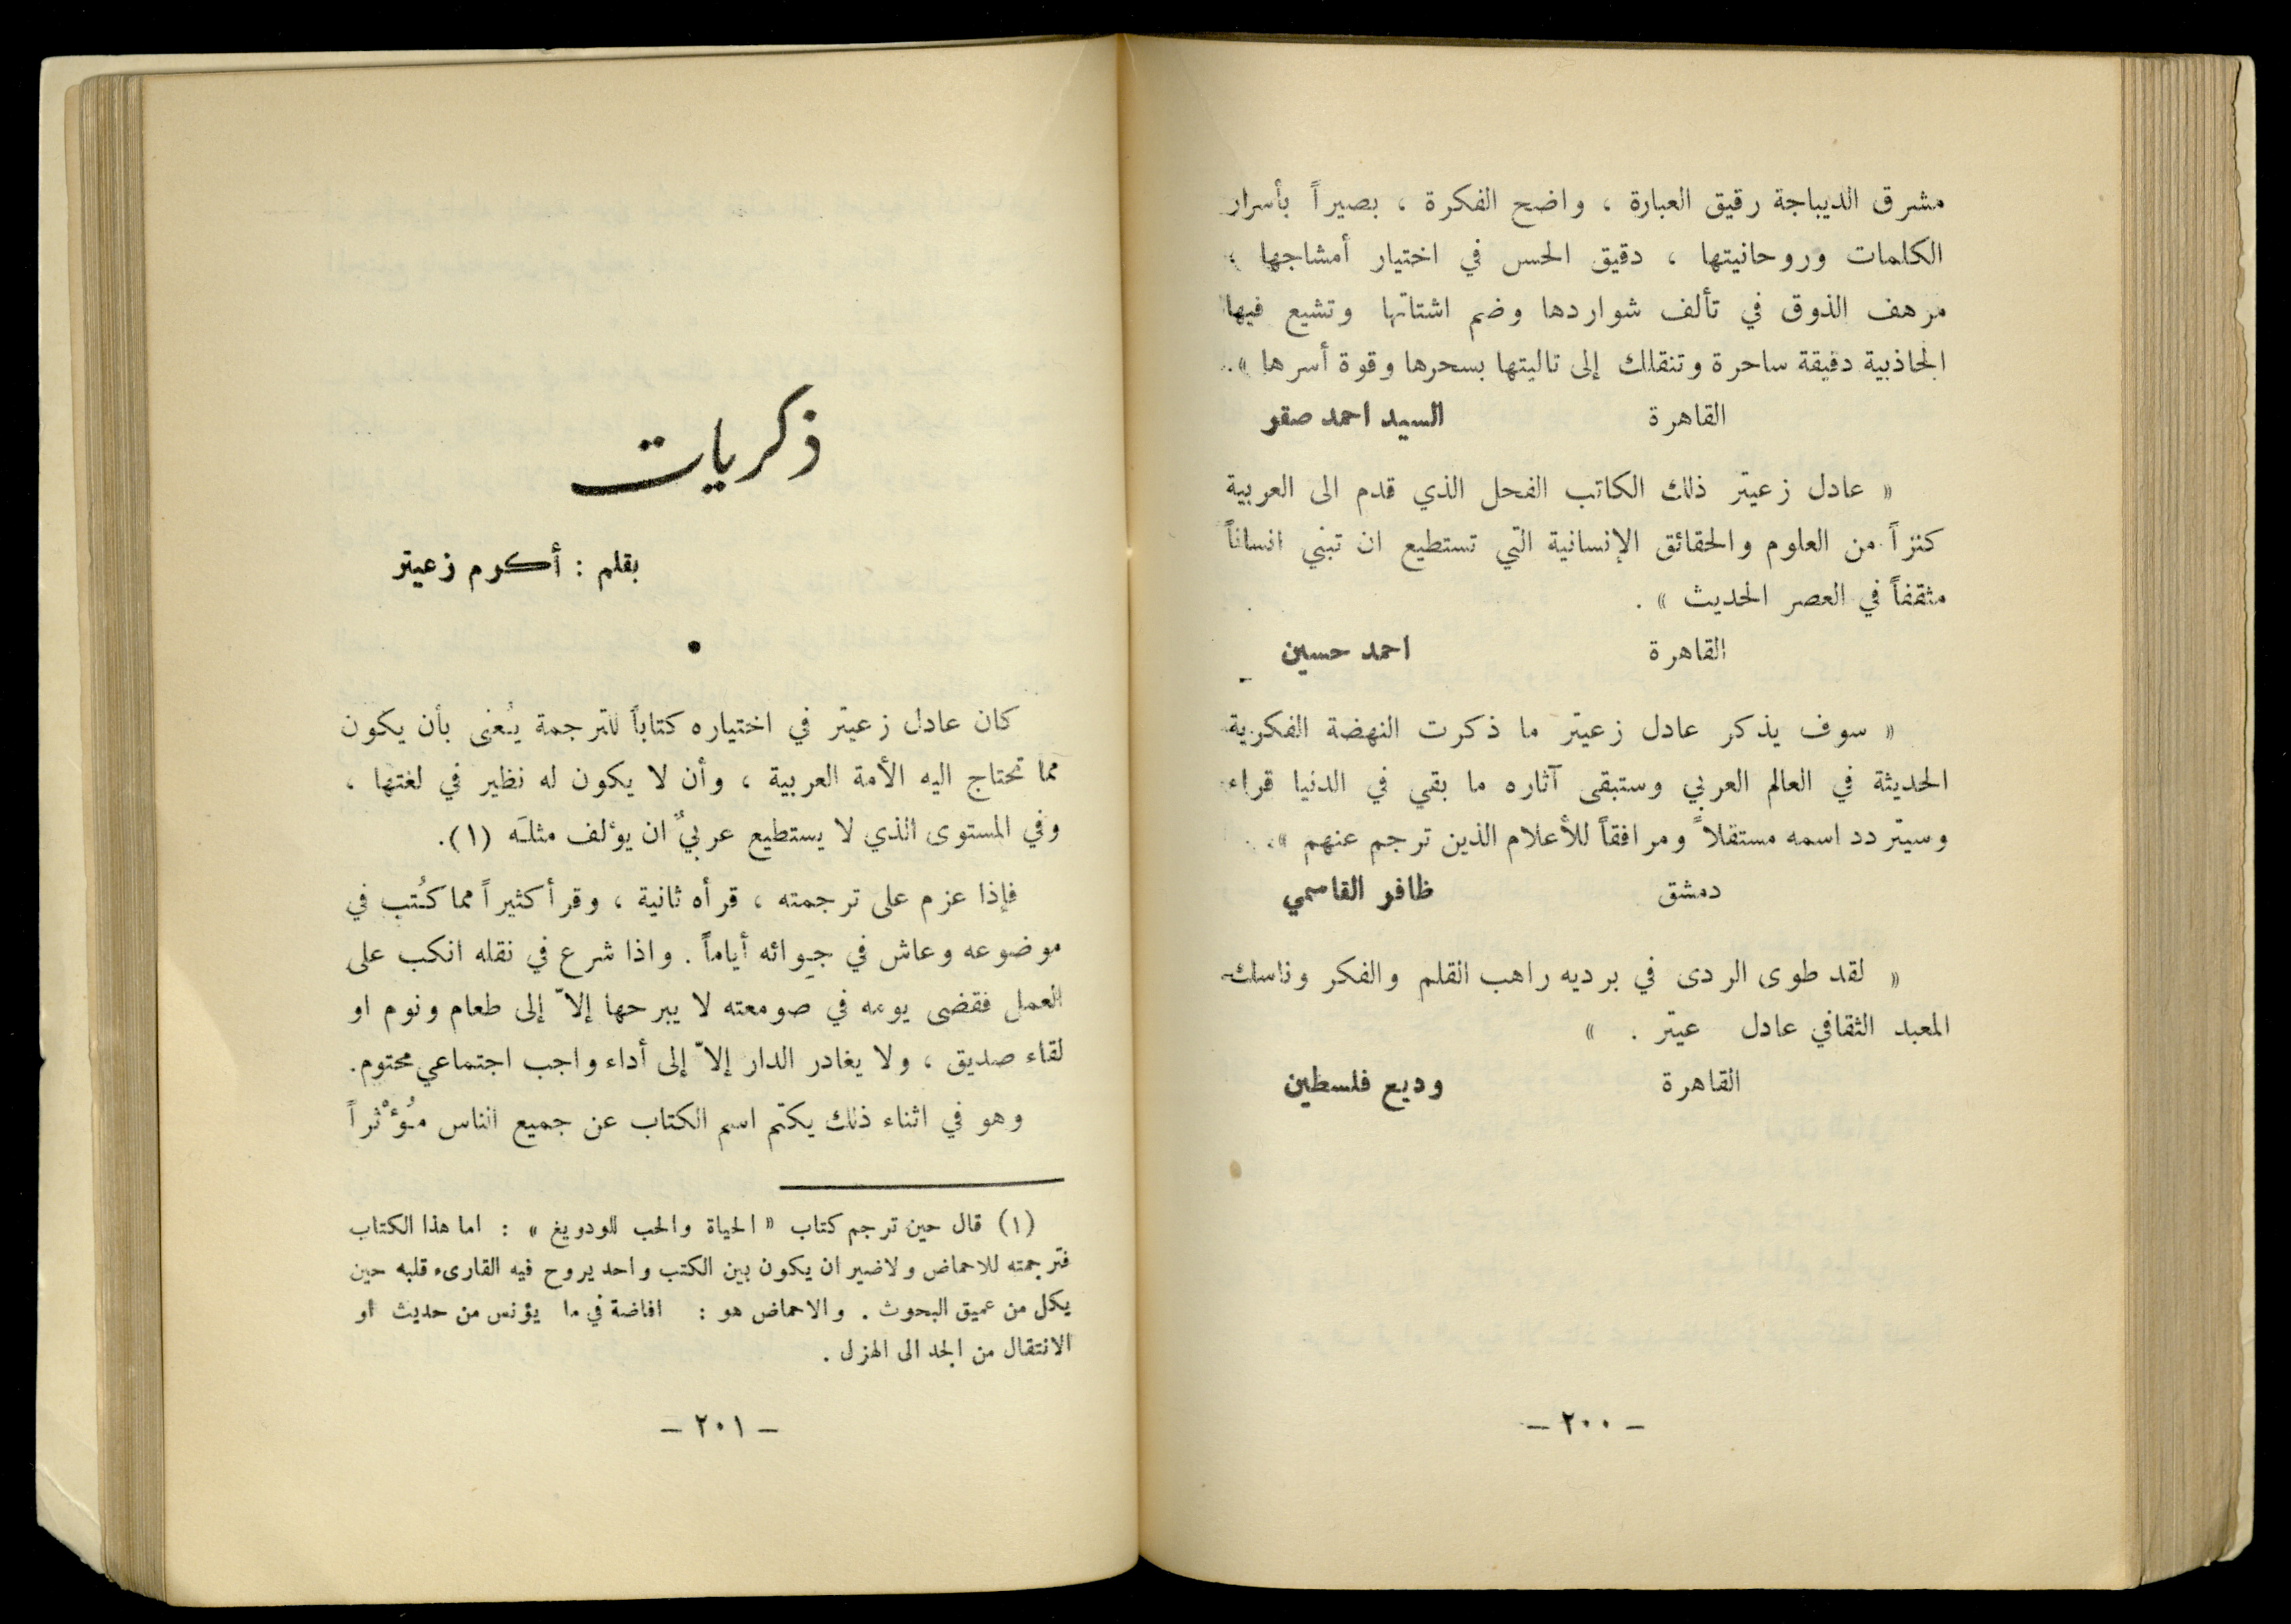 مشرق الديباجة رقيق العبارة ، واضح الفكرة ، بصيراً بأسرار
الكلمات وروحانيتها ، دقيق الحس في اختيار أمشاجها ،
مرهف الذوق في تألف شواردها وضم اشتاتها وتشيع فيها
الجاذبية دقيقة ساحرة وتنقلك إلى تاليتها بسحرها وقوة أسرها » .
القاهرة السيد احمد صقر
« عادل زعيتر ذلك الكاتب الفحل الذي قدم الى العربية
كنزاً من العلوم والحقائق الإنسانية التي تستطيع ان تبني انساناً
مثقفاً في العصر الحديث » .
القاهرة احمد حسين
« سوف يذكر عادل زعيتر ما ذكرت النهضة الفكرية
الحديثة في العالم العربي وستبقى آثاره ما بقي في الدنيا قراء
وسيتردد اسمه مستقلاً ومرافقاً للأعلام الذين ترجم عنهم » .
دمشق ظافر القاسمي
« لقد طوى الردى في برديه راهب القلم والفكر وناسك
المعبد الثقافي عادل عيتر . »
القاهرة وديع فلسطين
– ٢٠٠ –
ذكريات
بقلم : أكرم زعيتر
•
كان عادل زعيتر في اختياره كتاباً للترجمة يُعنى بأن يكون
مما تحتاج اليه الأمة العربية ، وأن لا يكون له نظير في لغتها ،
وفي المستوى الذي لا يستطيع عربيٌ ان يؤلف مثلَه (١).
فإذا عزم على ترجمته ، قرأه ثانية ، وقرأ كثيراً مما كُتب في
موضوعه وعاش في جِوائه أياماً . واذا شرع في نقله انكب على
العمل فقضى يومه في صومعته لا يبرحها إلاّ إلى طعام ونوم او
لقاء صديق ، ولا يغادر الدار إلاّ إلى أداء واجب اجتماعي محتوم.
وهو في اثناء ذلك يكتم اسم الكتاب عن جميع الناس مُؤْثراً
(١) قال حين ترجم كتاب « الحياة والحب للودويغ » : اما هذا الكتاب
فترجمته للاحماض ولاضير ان يكون بين الكتب واحد يروح فيه القارىء قلبه حين
يكل من عميق البحوث . والاحماض هو : افاضة في ما يؤنس من حديث او
الانتقال من الجد الى الهزل .
– ٢٠١ –